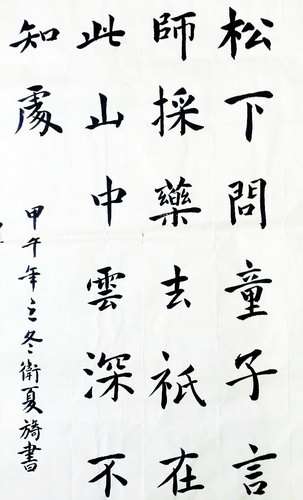 松下問童子言
師採藥去祇在
此山中雲深不
知處
甲午年立冬衛夏旖書